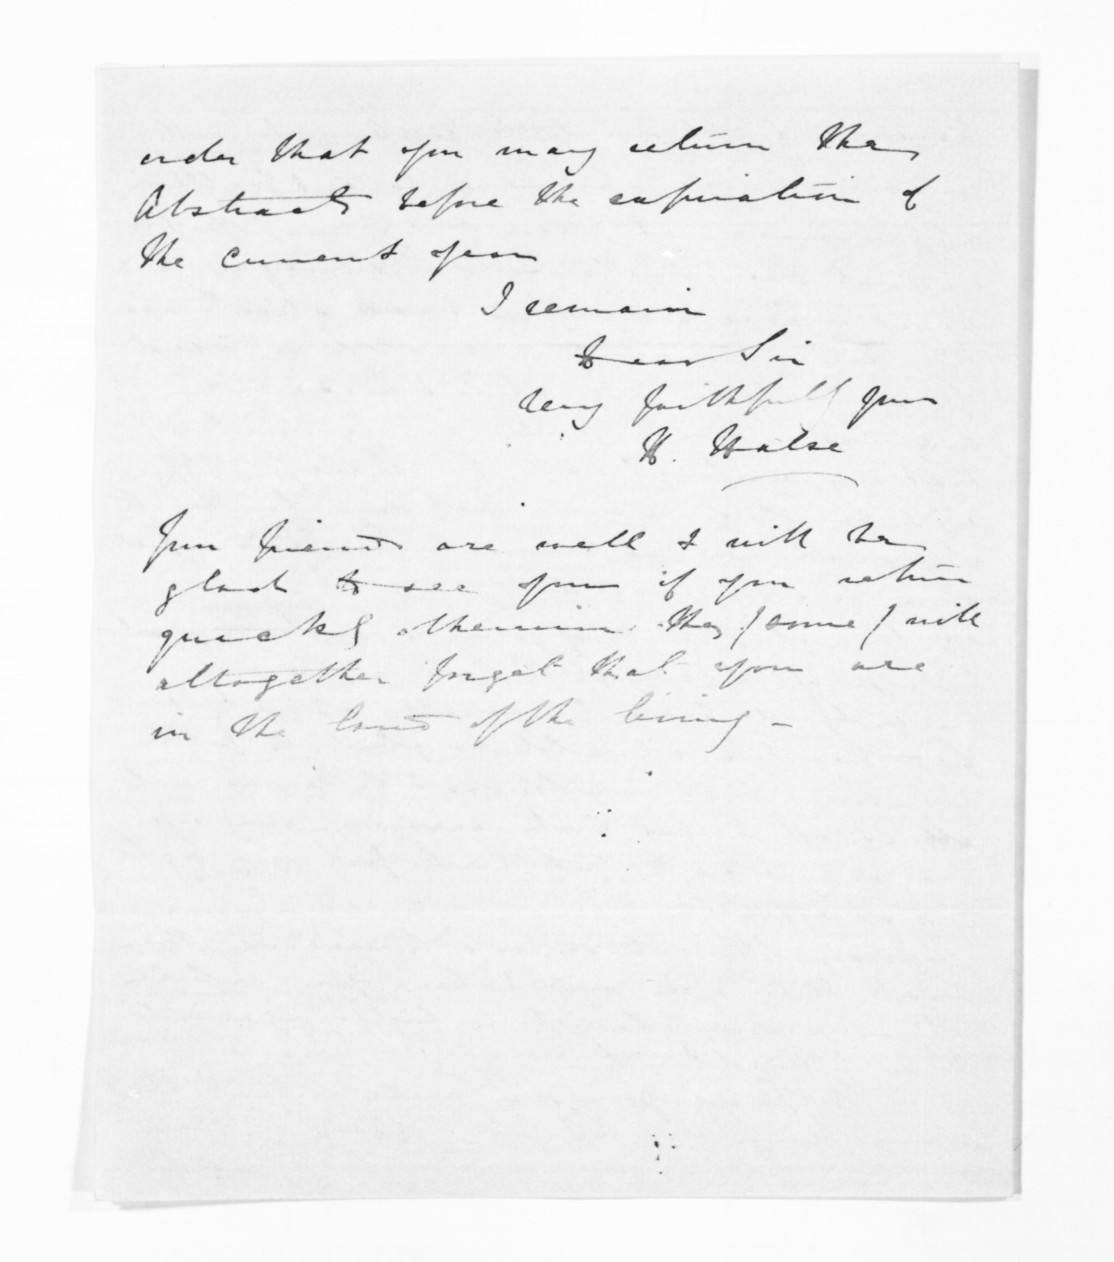 order that you may return the
Abstracts before the expiration of
the current year
I remain
Dear Sir
Very faithfully yours
H. Halse
Your friends are well & will be
glad to see you if you return
quickly otherwise they /some/ will
altogether forget that you are
in the land of the living -